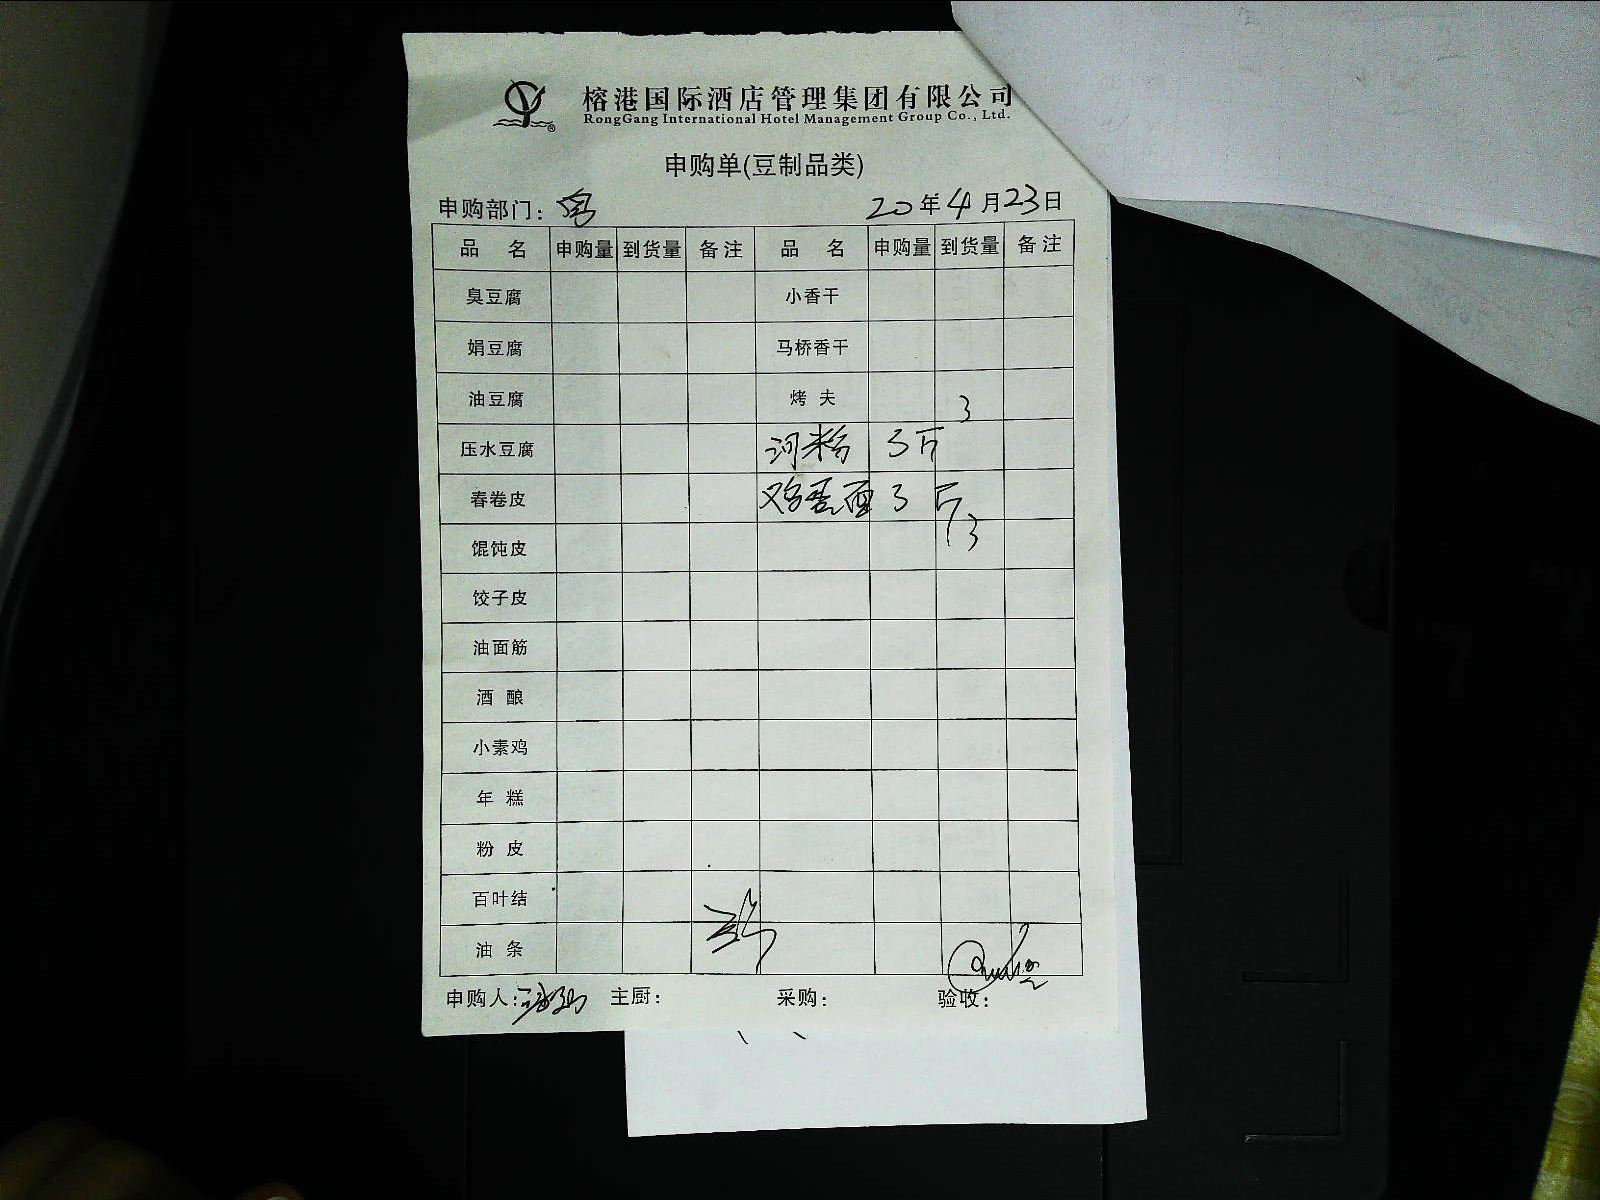 榕港国际酒店管理集团有限公司
RongGang International Hotel Management Group Co., Ltd.
申购单(豆制品类)
申购部门： 20年4月23日
品 名 申购量 到货量 备注 品 名 申购量 到货量 备注
臭豆腐 小香干
娟豆腐 马桥香干
油豆腐 烤 夫 3
压水豆腐 河粉 3斤
春卷皮 鸡蛋面 3斤
馄饨皮 3
饺子皮
油面筋
酒 酿
小素鸡
年 糕
粉 皮
百叶结
油 条
申购人： 主厨： 采购： 验收：